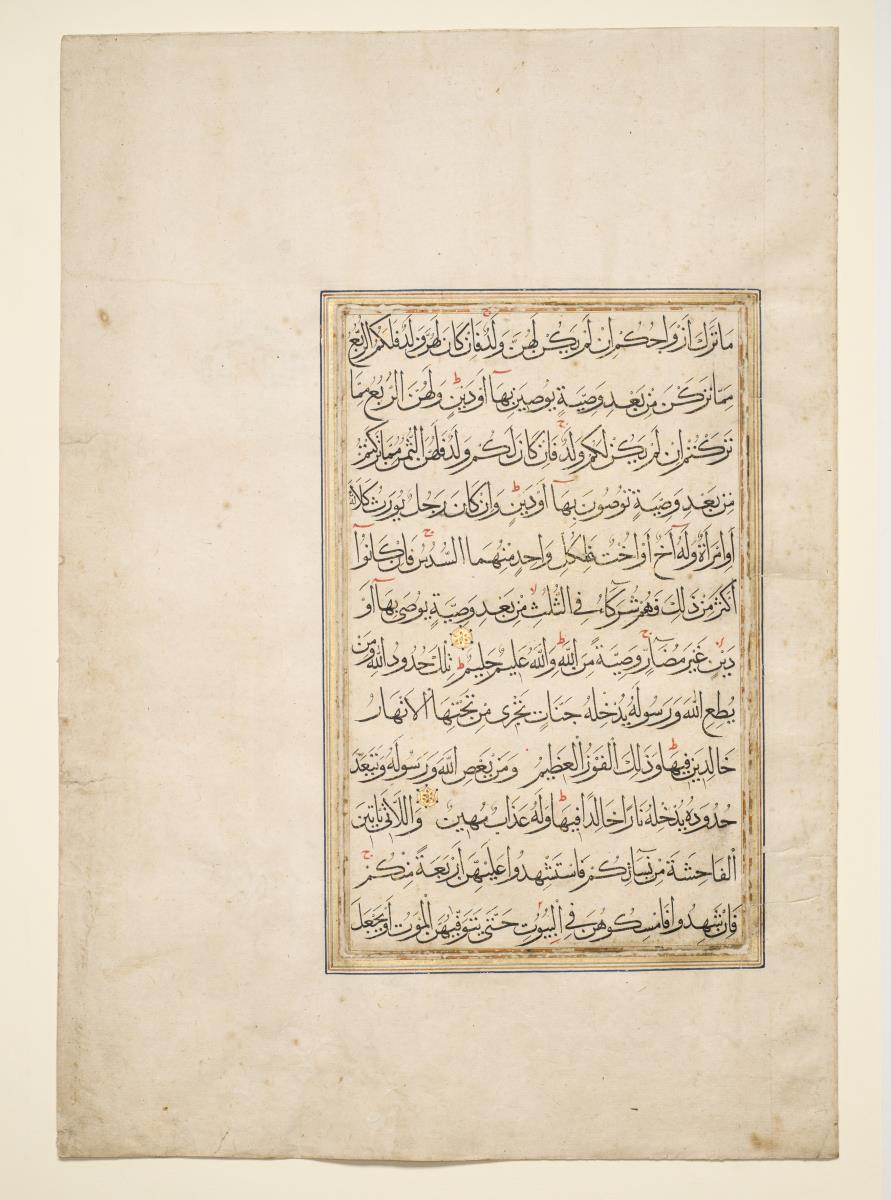 مَا تَرَكَ أَزْوَاجُكُمْ اِنْ لَمْ يَكُنْ لَهُنَّ وَلَدٌ فَاِنْ كَانَ لَهُنَّ وَلَدٌ فَلَكُمُ الرُّبُعُ
مِمَّا تَرَكْنَ مِنْ بَعْدِ وَصِيَّةٍ يُوصِينَ بِهَآ اَوْ دَيْنٍ وَلَهُنَّ الرُّبُعُ مِمَّا
تَرَكْتُمْ اِنْ لَمْ يَكُنْ لَكُمْ وَلَدٌ فَاِنْ كَانَ لَكُمْ وَلَدٌ فَلَهُنَّ الثُّمُنُ مِمَّا تَرَكْتُمْ
مِنْ بَعْدِ وَصِيَّةٍ تُوصُونَ بِهَآ اَوْ دَيْنٍ وَاِنْ كَانَ رَجُلٌ يُورَثُ كَلَالَةً
اَوِ امْرَأَةٌ وَلَهُٓ أَخٌ أَوْ اُخْتٌ فَلِكُلِّ وَاحِدٍ مِنْهُمَا السُّدُسُ فَاِنْ كَانُوٓا
أَكْثَرَ مِنْ ذٰلِكَ فَهُمْ شُرَكَآءُ فِي الثُّلُثِ مِنْ بَعْدِ وَصِيَّةٍ يُوصٰى بِهَآ اَوْ
دَيْنٍ غَيْرَ مُضَآرٍّ وَصِيَّةً مِنَ اللّٰهِ وَاللّٰهُ عَلِيمٌ حَلِيمٌ تِلْكَ حُدُودُ اللّٰهِ وَمَنْ
يُطِعِ اللّٰهَ وَرَسُولَهُ يُدْخِلْهُ جَنَّاتٍ تَجْرِى مِنْ تَحْتِهَا الْاَنْهَارُ
خَالِدِينَ فِيهَا وَذٰلِكَ الْفَوْزُ الْعَظِيمُ وَمَنْ يَعْصِ اللّٰهَ وَرَسُولَهُ وَيَتَعَدَّ
حُدُودَهُ يُدْخِلْهُ نَارًا خَالِدًا فِيهَا وَلَهُ عَذَابٌ مُهِينٌ وَاللَّاتِى يَأْتِينَ
الْفَاحِشَةَ مِنْ نِسَآئِكُمْ فَاسْتَشْهِدُوا عَلَيْهِنَّ أَرْبَعَةً مِنْكُمْ
فَاِنْ شَهِدُوا فَاَمْسِكُوهُنَّ فِي الْبُيُوتِ حَتّٰى يَتَوَفّٰيهُنَّ الْمَوْتُ اَوْ يَجْعَلَ